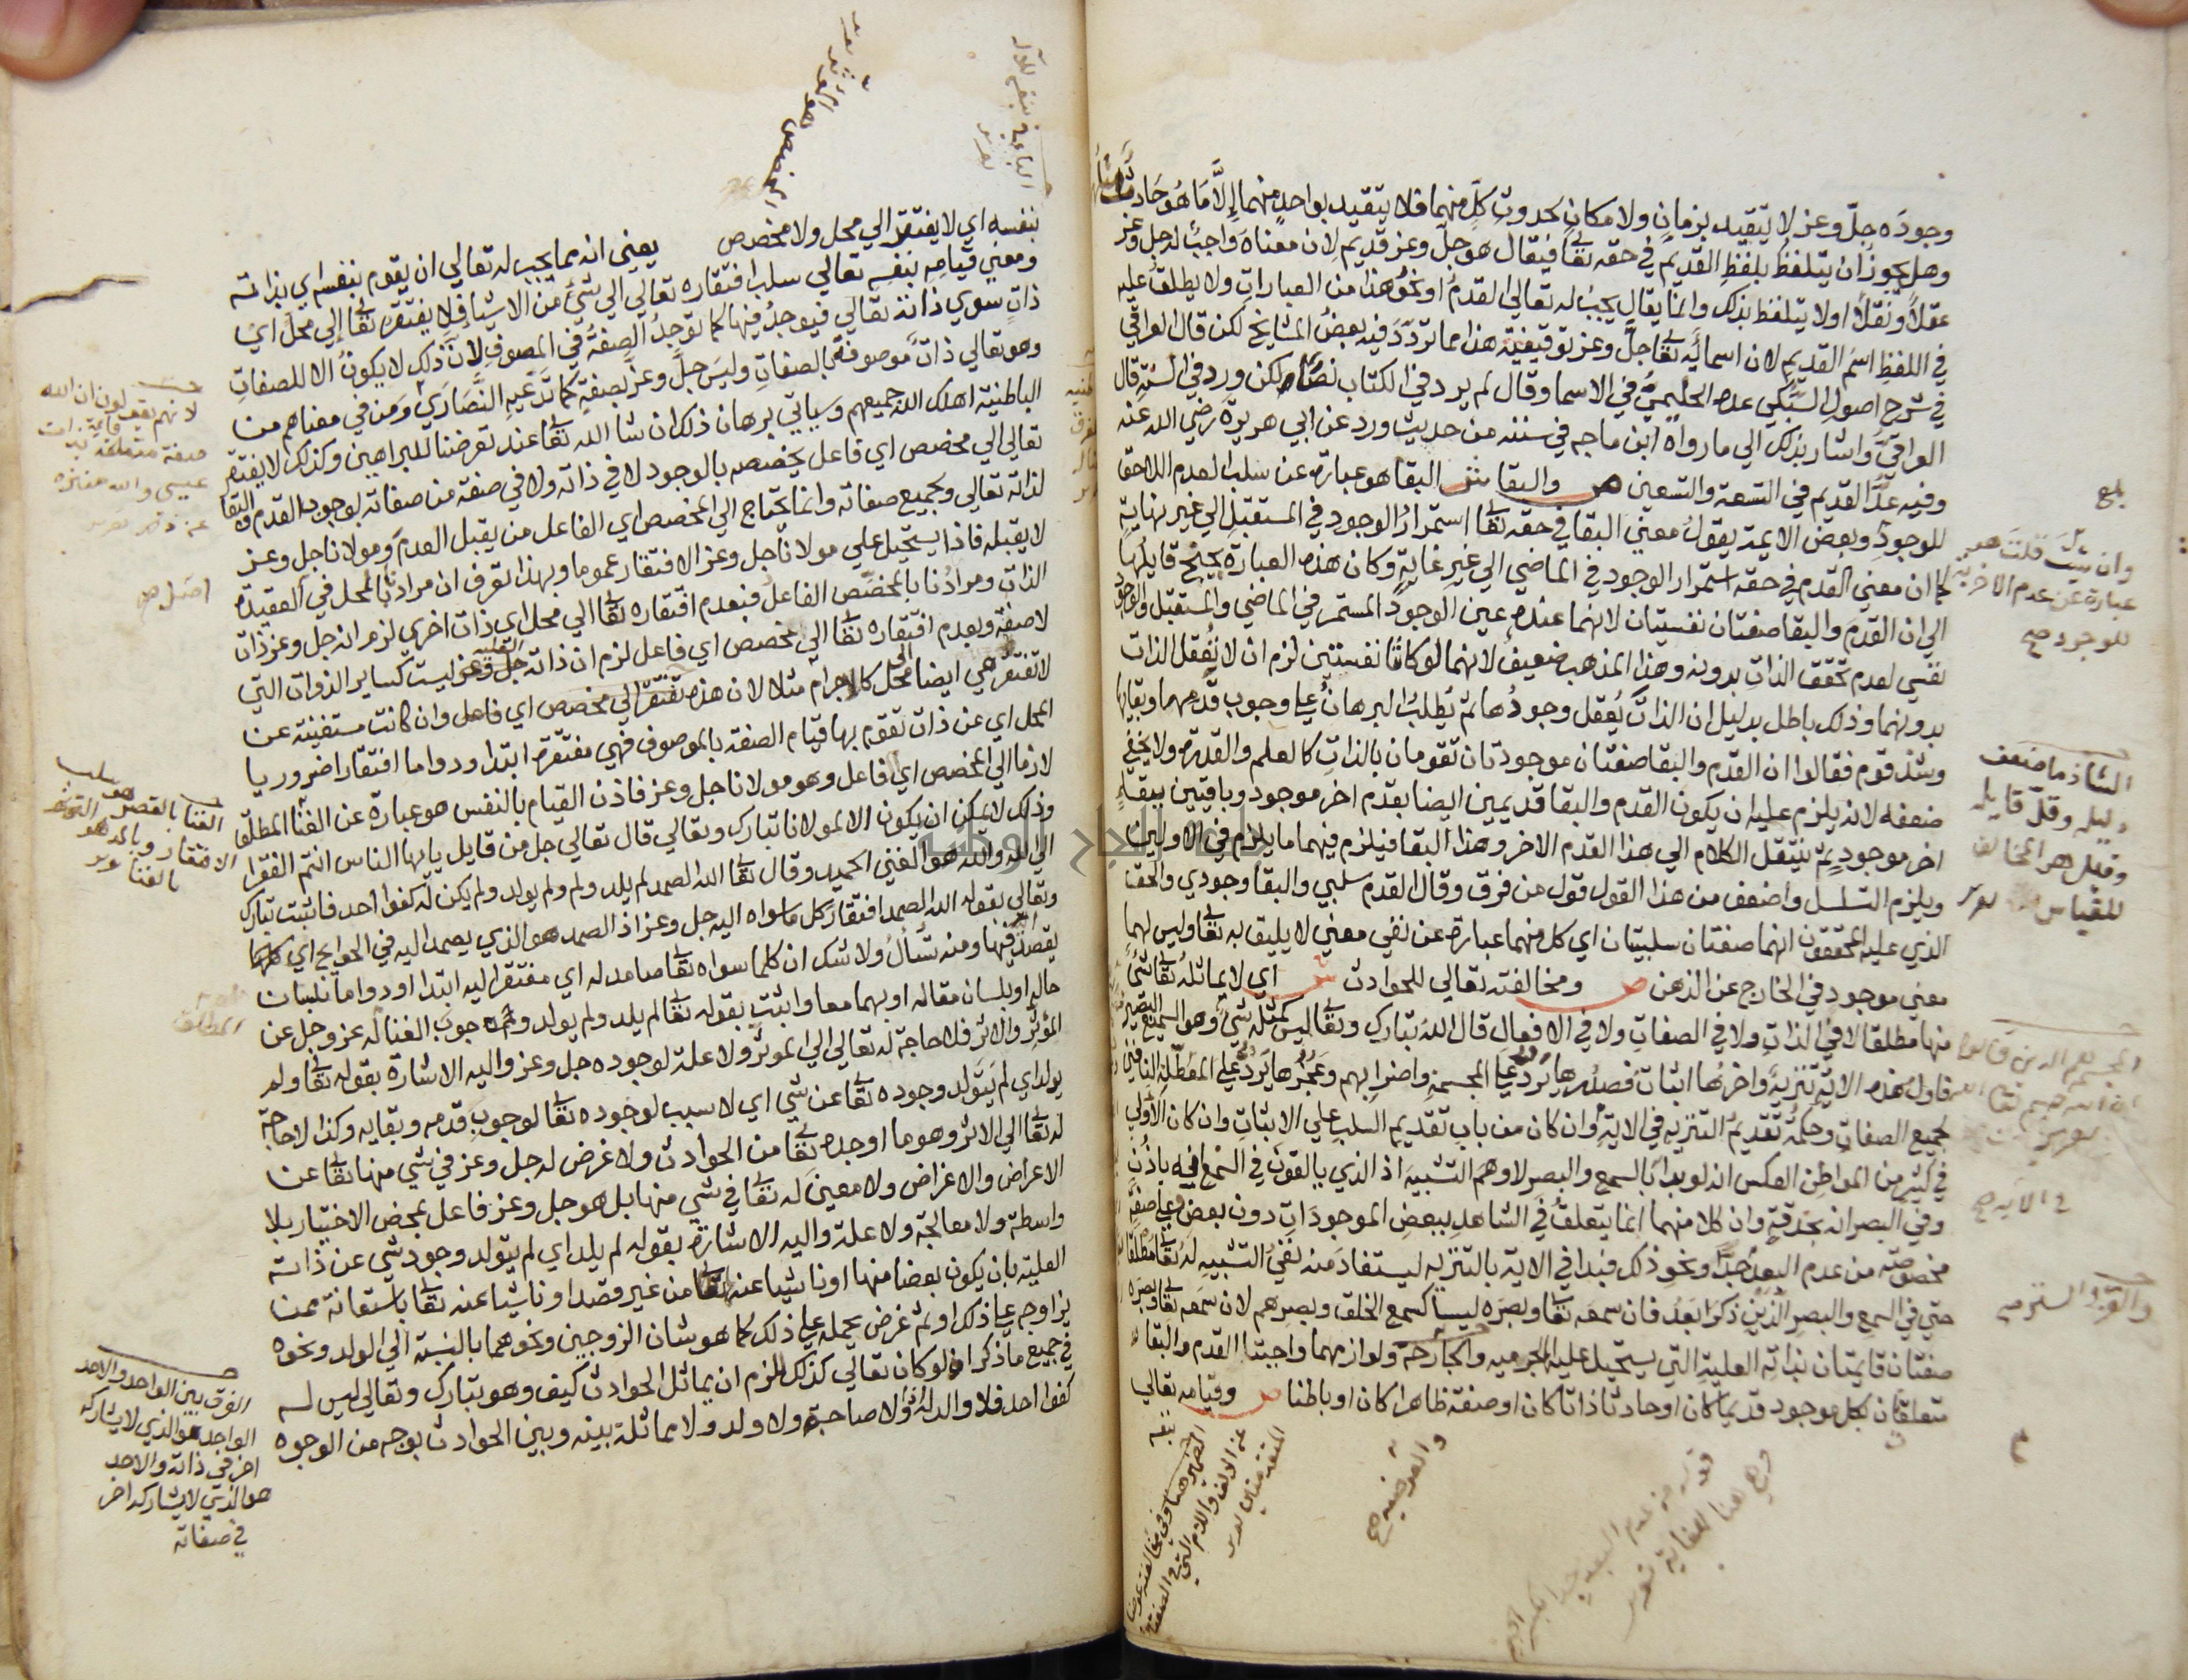 وجوده جلّ وعز لا يتقيد بزمان ولا مكان لحدوث كل منهما فلا يتقيد بواحد منهما إلا ما هو حادث مثلهما
وهل يجوز ان يتلفظ بلفظ القديم في حقه تعا فيقال هو جل وعز قديم لان معناه واجب له جل وعز
عقلا ونقلا اولا يتلفظ بذلك وانما يقال يجب له تعالي القدم او نحو هذا من العبارات ولا يطلق عليه
في اللفظ اسم القديم لان اسمائه تعا جل وعز توقيفية هذا مما تردد فيه بعض المشايخ لكن قال العراقي
في شرح اصول السبكي عده الحليمي في الاسما وقال لم يرد في الكتاب نصا لكن ورد في السنة قال
العراقي واشار بذلك الي ما رواه ابن ماجه في سننه من حديث ورد عن ابي هريرة رضي الله عنه
وفيه عد القديم في التسعة والتسعين ص والبقا ش البقا هو عبارة عن سلب العدم اللاحق
للوجود وبعض الايمة يقول معني البقا في حقه تعا استمرار الوجود في المستقبل الي غير نهاية
كما ان معني القدم في حقه استمرار الوجود في الماضي الي غير غاية وكان هذه العبارة يجنح قايلها
الي ان القدم والبقا صفتان نفسيتان لانهما عنده عين الوجود المستمر في الماضي والمستقبل والوجود
نفسي لعدم تحقق الذات بدونه وهذا المذهب ضعيف لانهما لو كانا نفسيتين لزم ان لا تعقل الذات
بدونهما وذلك باطل بدليل ان الذات يعقل وجودها ثم يطلب البرهان علي وجوب قدمها وبقايها
وشذ قوم فقالوا ان القدم والبقا صفتان موجودتان تقومان بالذات كالعلم والقدرة ولا يخفي
ضعفه لانه يلزم عليه ان يكون القدم والبقا قديمين ايضا بقدم اخر موجود وباقيين ببقاء
اخر موجود ثم ينتقل الكلام الي هذا القدم الاخر وهذا البقا فيلزم فيهما ما يلزم في الاولين
ويلزم التسلسل واضعف من هذا القول قول من فرق وقال القدم سلبي والبقا وجودي والحق
الذي عليه المحققون انهما صفتان سلبيتان اي كل منهما عبارة عن نفي معني لا يليق به تعا وليس لهما
معني موجود في الخارج عن الذهن ص ومخالفته تعالي للحوادث ش اي لا يماثله تعا شئ
منها مطلقا لا في الذات ولا في الصفات ولا في الافعال قال الله تبارك وتعا ليس كمثله شئ وهو السميع البصير
فاول هذه الاية تنزيه واخرها اثبات فصدرها يرد علي المجسمة واضرابهم وعجزها يرد علي المعطلة النافين
لجميع الصفات وحكمة تقديم التنزيه في الاية وان كان من باب تقديم السلب علي الاثبات وان كان الاولي
في كثير من المواطن العكس انه لو بدأ بالسمع والبصر لاوهم التشبيه اذ الذي يالفون في السمع انه باذن
وفي البصر انه بحدقة وان كلا منهما انما يتعلق في الشاهد ببعض الموجودات دون بعض وعلي صفة
مخصوصة من عدم البعد جدا ونحو ذلك فبدا في الاية بالتنزيه ليستفاد منه نفي التشبيه له تعا مطلقا
حتي في السمع والبصر الذين ذكرا بعد فان سمعه تعا وبصره ليسا كسمع الخلق وبصرهم لان سمعه تعا وبصره
صفتان قايمتان بذاته العلية التي يستحيل عليه الجرمية والجارحة ولوازمهما واجبتا القدم والبقا
متعلقتان بكل موجود قديما كان او حادثا ذاتا كان او صفة ظاهرا كان او باطنا ص وقيامه تعالي
بنفسه
بلغ
وان شيت قلت هو
عبارة عن عدم الاخرية
للوجود صح
الشاذ ما ضعف
دليله وقل قايله
وقيل هو المخالف
للقياس
بنفسه اي لا يفتقر الي محل ولا مخصص يعني انه مما يجب له تعالي ان يقوم بنفسه اي بذاته
ومعني قيامه بنفسه تعالي سلب افتقاره تعالي الي شئ من الاشيا فلا يفتقر تعا الي محل اي
ذات سوي ذاته تعالي فيوجد فيها كما توجد الصفة في الموصوف لان ذلك لا يكون الا للصفات
وهو تعالي ذات موصوفة بالصفات وليس جل وعز بصفة كما تدعيه النصاري ومن في معناهم من
الباطنية اهلك الله جميعهم وسياتي برهان ذلك ان شا الله تعا عند تعرضنا للبراهين وكذلك لا يفتقر
تعالي الي مخصص اي فاعل يخصصه بالوجود لا في ذاته ولا في صفة من صفاته لوجوب القدم والبقا
لذاته تعالي ولجميع صفاته وانما يحتاج الي المخصص اي الفاعل من يقبل العدم ومولانا جل وعز
لا يقبله فاذا يستحيل علي مولانا جل وعز الافتقار عموما وبهذا تعرف ان مرادنا بالمحل في العقيدة
الذات ومرادنا بالمخصص الفاعل فبعدم افتقاره تعا الي محل اي ذات اخري لزم انه جل وعز ذات
لا صفة وبعدم افتقاره تعا الي مخصص اي فاعل لزم ان ذاته جل وعز ليست كساير الذوات التي
لا تفتقر هي ايضا الي محل كالاجرام مثلا لان هذه تفتقر الي مخصص اي فاعل وان كانت مستغنية عن
المحل اي عن ذات تقوم بها قيام الصفة بالموصوف فهي مفتقرة ابتدا ودواما افتقارا ضروريا
لازما الي المخصص اي فاعل وهو مولانا جل وعز فاذن القيام بالنفس هو عبارة عن الغنا المطلق
وذلك لا يمكن ان يكون الا لمولانا تبارك وتعالي قال تعالي جل من قايل يايها الناس انتم الفقرا
الي الله والله هو الغني الحميد وقال تعا الله الصمد لم يلد ولم ولم يولد ولم يكن له كفوا احد فاثبت تبارك
وتعالي بقوله الله الصمد افتقار كل ما سواه اليه جل وعز اذ الصمد هو الذي يصمد اليه في الحوايج اي
يقصد فيها ومنه تسأل ولا شك ان كلما سواه تعا صامد له اي مفتقر اليه ابتدا او دواما بلسان
حاله او بلسان مقاله او بهما معا واثبت بقوله تعا لم يلد ولم يولد وجوب الغنا له عز وجل عن
المؤثر والاثر فلا حاجة له تعالي الي الموثر ولا علة لوجوده جل وعز واليه الاشارة بقوله تعا ولم
يولد اي لم يتولد وجوده تعا عن شي اي لا سبب لوجوده تعا لوجوب قدمه وبقايه وكذا لا حاجة
له تعا الي الاثر وهو ما اوجده تعا من الحوادث ولا غرض له جل وعز في شي منها تعا عن
الاعراض والاغراض ولا معين له تعا في شي منها بل هو جل وعز فاعل بمحض الاختيار بلا
واسطة ولا معالجة ولا علة واليه الاشارة بقوله لم يلد اي لم يتولد وجود شي عن ذاته
العلية بان يكون بعضا منها او ناشيا عنه تعا من غير قصد او ناشيا عنه تعا باستعانة ممن
يزاوجه علي ذلك او ثم غرض يحمله علي ذلك كما هو شان الزوجين ونحوهما بالنسبة الي الولد ونحوه
في جميع ما ذكر اذ لو كان تعالي كذلك للزم ان يماثل الحوادث كيف وهو تبارك وتعالي ليس له
كفوا احد فلا والد له ولا صاحبة ولا ولد ولا مماثلة بينه وبين الحوادث بوجه من الوجوه
الغنا بالقصر هو سلب
الافتقار وبالمد هو
الفرق بين الواحد والاحد
الواحد هو الذي لا يشاركه
اخر في ذاته والاحد
هو الذي لا يشاركه اخر
في صفاته